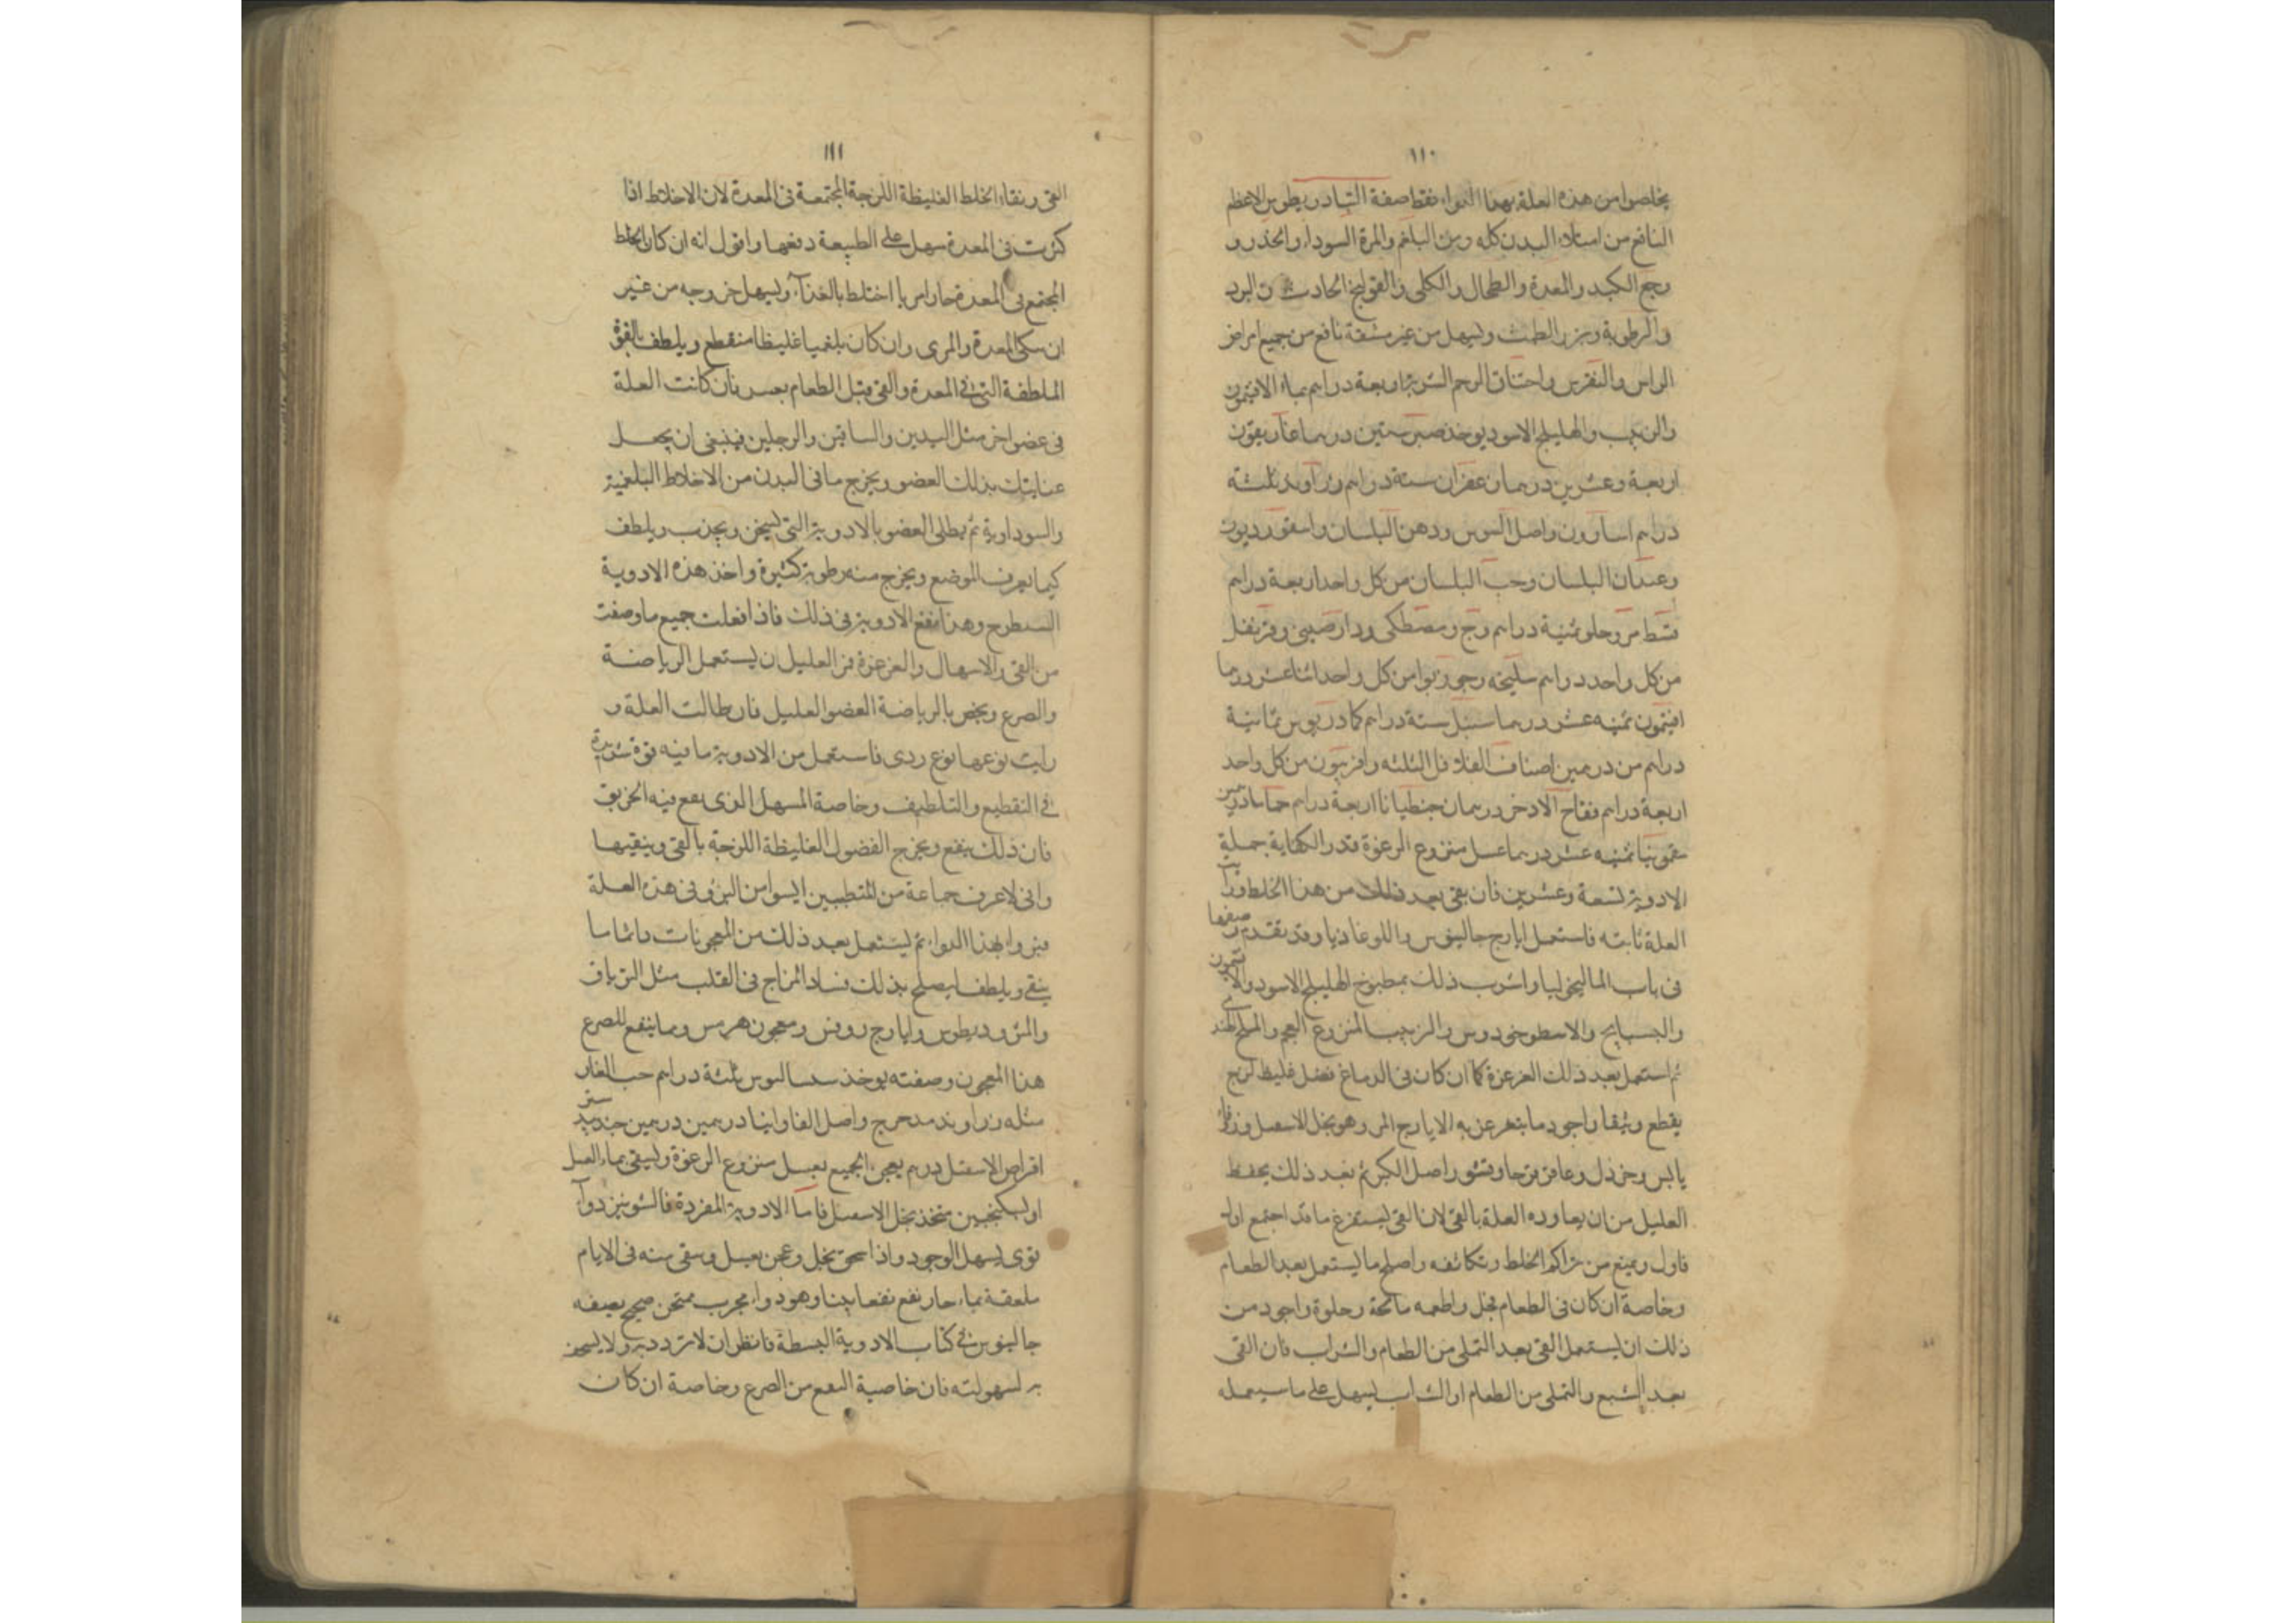 ١١٠
يخلصوا من هذه العلة بهذا الدواء فقط صفة التيادريطوس الاعظم
النافع من امتلاء البدن كله ومن البلغم والمرة السوداء والخدر و
وجع الكبد والمعدة والطحال والكلى والقولنج الحادث من البرد
والرطوبة ويزر الطمث ويسهل من غير مشقة نافع من جميع امراض
الراس والنقرس واختناق الرحم الشربة اربعة دراهم بماء الافتيمون
والزبيب والهليلج الاسود يوخذ صبر ستين درهما غاريقون
اربعة وعشرين درهما زعفران ستة دراهم وزراوند ثلثة
دراهم اسارون واصل السوس ودهن البلسان واسقورديون
وعيدان البلسان وحب البلسان من كل واحد اربعة دراهم
قسط مر وحلو ثمنية دراهم وج ومصطكى ودارصينى وقرنفل
من كل واحد دراهم سليخه وجوزبوا من كل واحد اثنا عشر درهما
افتيمون ثمنيه عشر درهما سنبل ستة دراهم كمادريوس ثمانية
دراهم من درهمين اصناف الفلافل الثلثه وافربيون من كل واحد
اربعة دراهم فقاح الاذخر درهمان جنطيانا اربعة دراهم حماما درهمين
سقمونيا ثمنيه عشر درهما عسل منزوع الرغوة قدر الكفاية جملة
الادوية تسعة وعشرين فان بقى بعد ذلك من هذا الخلط ورايت
العلة ثابته فاستعمل ايارج جالينوس واللوغاذيا وقد تقدم وصفها
فى باب الماليخوليا واشرب ذلك بمطبوخ الهليلج الاسود والافتيمون
والبسبايج والاسطوخودوس والزبيب المنزوع العجم والملح الهندى
ثم استعمل بعد ذلك الغرغرة كما ان كان فى الدماغ فضل غليظ لزج
يقطع وينقا واجود ما يتغرغر به الايارج المر وهو بخل الاسقيل وزوفا
يابس وخردل وعاقرقرحا وقشور اصل الكبر ثم بعد ذلك يحفظ
العليل من ان يعاوده العلة بالقى لان القى يستفرغ ما قد اجتمع اول
فاول ويمنع من تراكم الخلط وتكاثفه واصلح ما يستعمل بعد الطعام
وخاصة ان كان فى الطعام فجل واطعمه مالحة وحلوة واجود من
ذلك ان يستعمل القى بعد التملى من الطعام والشراب فان القى
بعد الشبع والتملى من الطعام او الشراب يسهل على ما سيعمله
١١١
القى ونقاء الخلط الغليظة اللزجة المجتمعة فى المعدة لان الاخلاط اذا
كثرت فى المعدة سهل على الطبيعة دفعها واقول انه ان كان الخلط
المجتمع فى المعدة حارا مريا اختلط بالغذآء ويسهل خروجه من غير
ان ينكى المعدة والمرى وان كان بلغميا غليظا منقطع ويلطف بالقوة
الملطفة التى فى المعدة والقى قبل الطعام بعسر فان كانت العلة
فى عضو اخر مثل اليدين والساقين والرجلين فينبغى ان يجعل
عنايتك بذلك العضو ويخرج ما فى البدن من الاخلاط البلغمية
والسوداوية ثم يطلى العضو بالادوية التى تسخن ويجذب ويلطف
كيما يعرف الموضع ويخرج منه رطوبة كثيرة واخذ هذه الادوية
السطرح وهذا انفع الادوية فى ذلك فاذا فعلت جميع ما وصفت
من القى والاسهال والغرغرة فمر العليل ان يستعمل الرياضة
والصرع ويخص بالرياضة العضو العليل فان طالت العلة و
رايت نوعها نوع ردى فاستعمل من الادوية ما فيه قوة شديدة
فى التقطيع والتلطيف وخاصة المسهل الذى يقع فيه الخربق
فان ذلك ينفع ويخرج الفضول الغليظة اللزجة بالقى وينقيها
وانى لاعرف جماعة من المتطببين ايسوا من البرؤ فى هذه العلة
فبروا بهذا الدواء ثم يستعمل بعد ذلك من المعجونات دائما ما
ينقى ويلطف ليصلح بذلك فساد المزاج فى القلب مثل الترياق
والمثروديطوس وايارج روفس ومعجون هرمس ومما ينفع للصرع
هذا المعجون وصفته يوخذ سساليوس ثلثة دراهم حب الغار
مثله زراوند مدحرج واصل الفاوانيا درهمين درهمين جندبيدستر
اقراص الاسقيل درهم يعجن الجميع بعسل منزوع الرغوة ويسقى بماء العسل
او بسكنجبين متخذ بخل الاسقيل فاما الادوية المفردة فالشونيز دوآء
قوى يسهل الوجود واذا سحق بخل وعجن بعسل وسقى منه فى الايام
ملعقة بماء حار نفع نفعا بينا وهو دواء مجرب ممتحن صحيح يصفه
جالينوس فى كتاب الادوية البسيطة فانظر ان لا تزدد به ولا يسخر
به لسهولته فان خاصية النفع من الصرع وخاصة ان كان